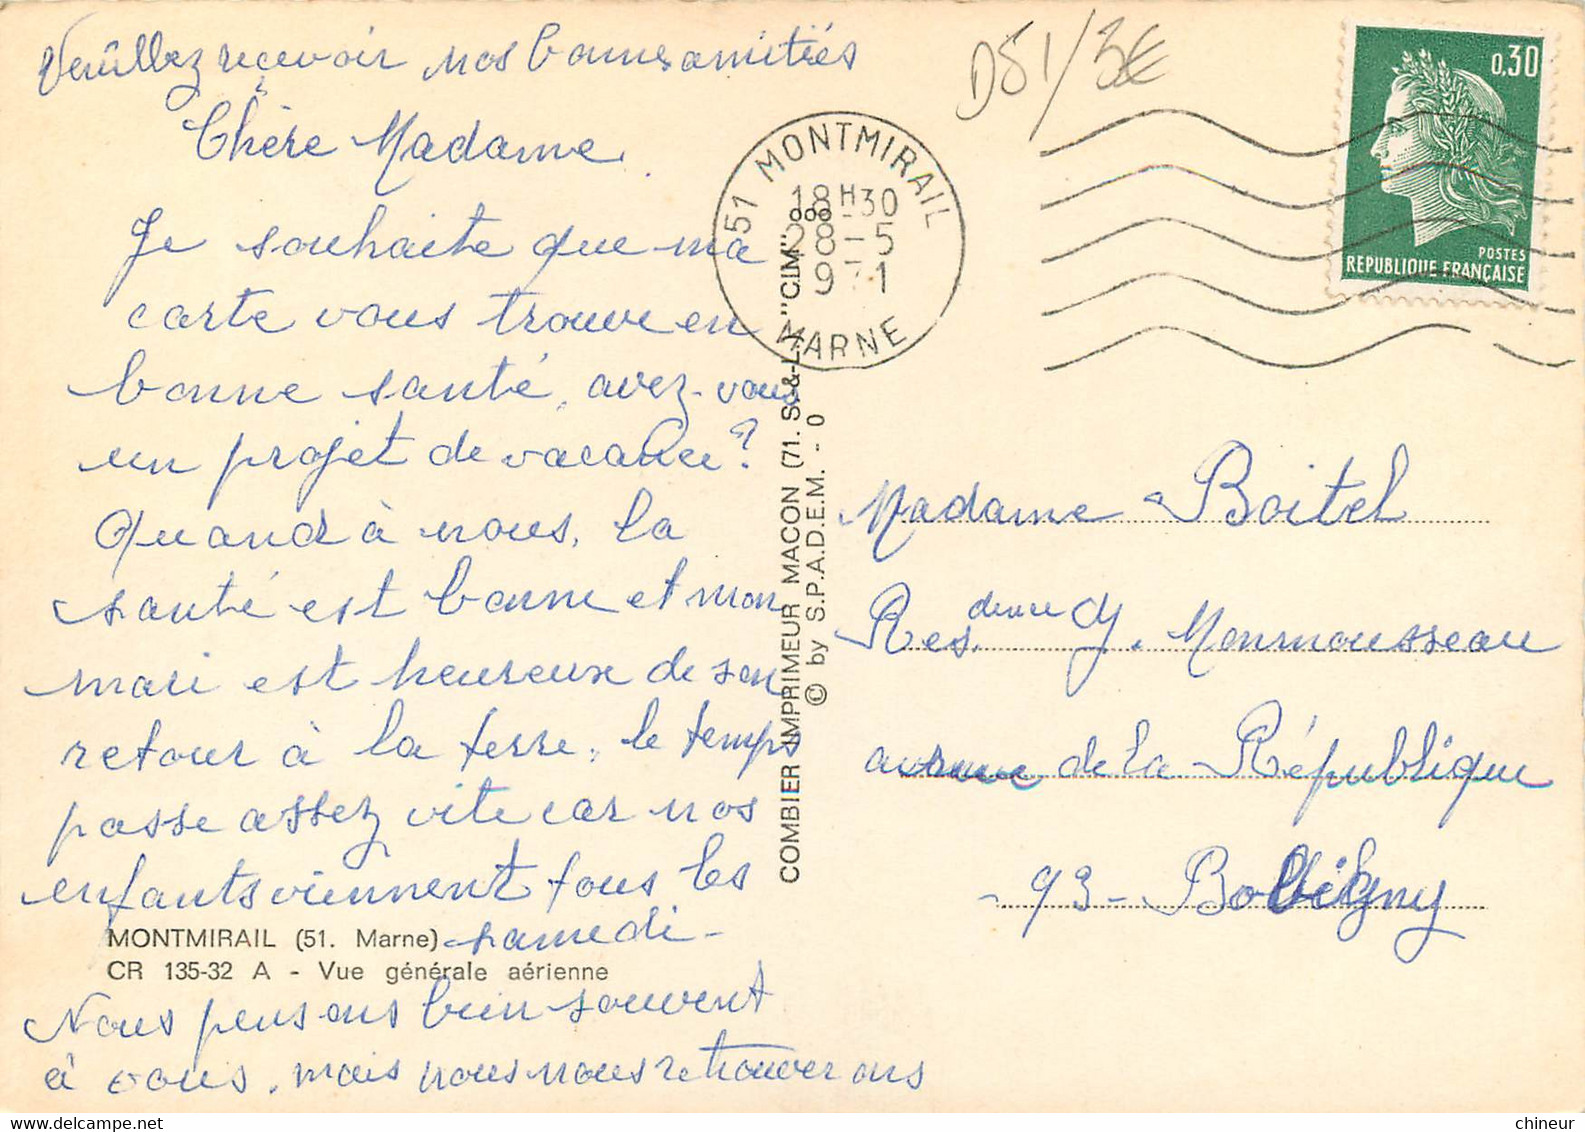 Veuillez reçevoir nos bonnes amitiés
D51/3€
0,30
POSTES
REPUBLIQUE FRANÇAISE
51 MONTMIRAIL
18H30
28-5
971
MARNE
Chère Madame,
Je souhaite que ma
carte vous trouve en
bonne santé, avez-vous
un projet de vacance?
Quand à nous, la
santé est bonne et mon
mari est heureux de son
retour à la terre, le temps
passe assez vite car nos
enfants viennent tous les
samedi -
MONTMIRAIL (51. Marne)
CR 135-32 A - Vue générale aérienne
Nous pensons bien souvent
à vous, mais nous nous retrouverons
COMBIER IMPRIMEUR MACON (71. S.-&-L.) "CIM"
© by S.P.A.D.E.M. - 0
Madame Boitel
Residence G. Monmousseau
avenue de la République
- 93 - Bobigny
chineur